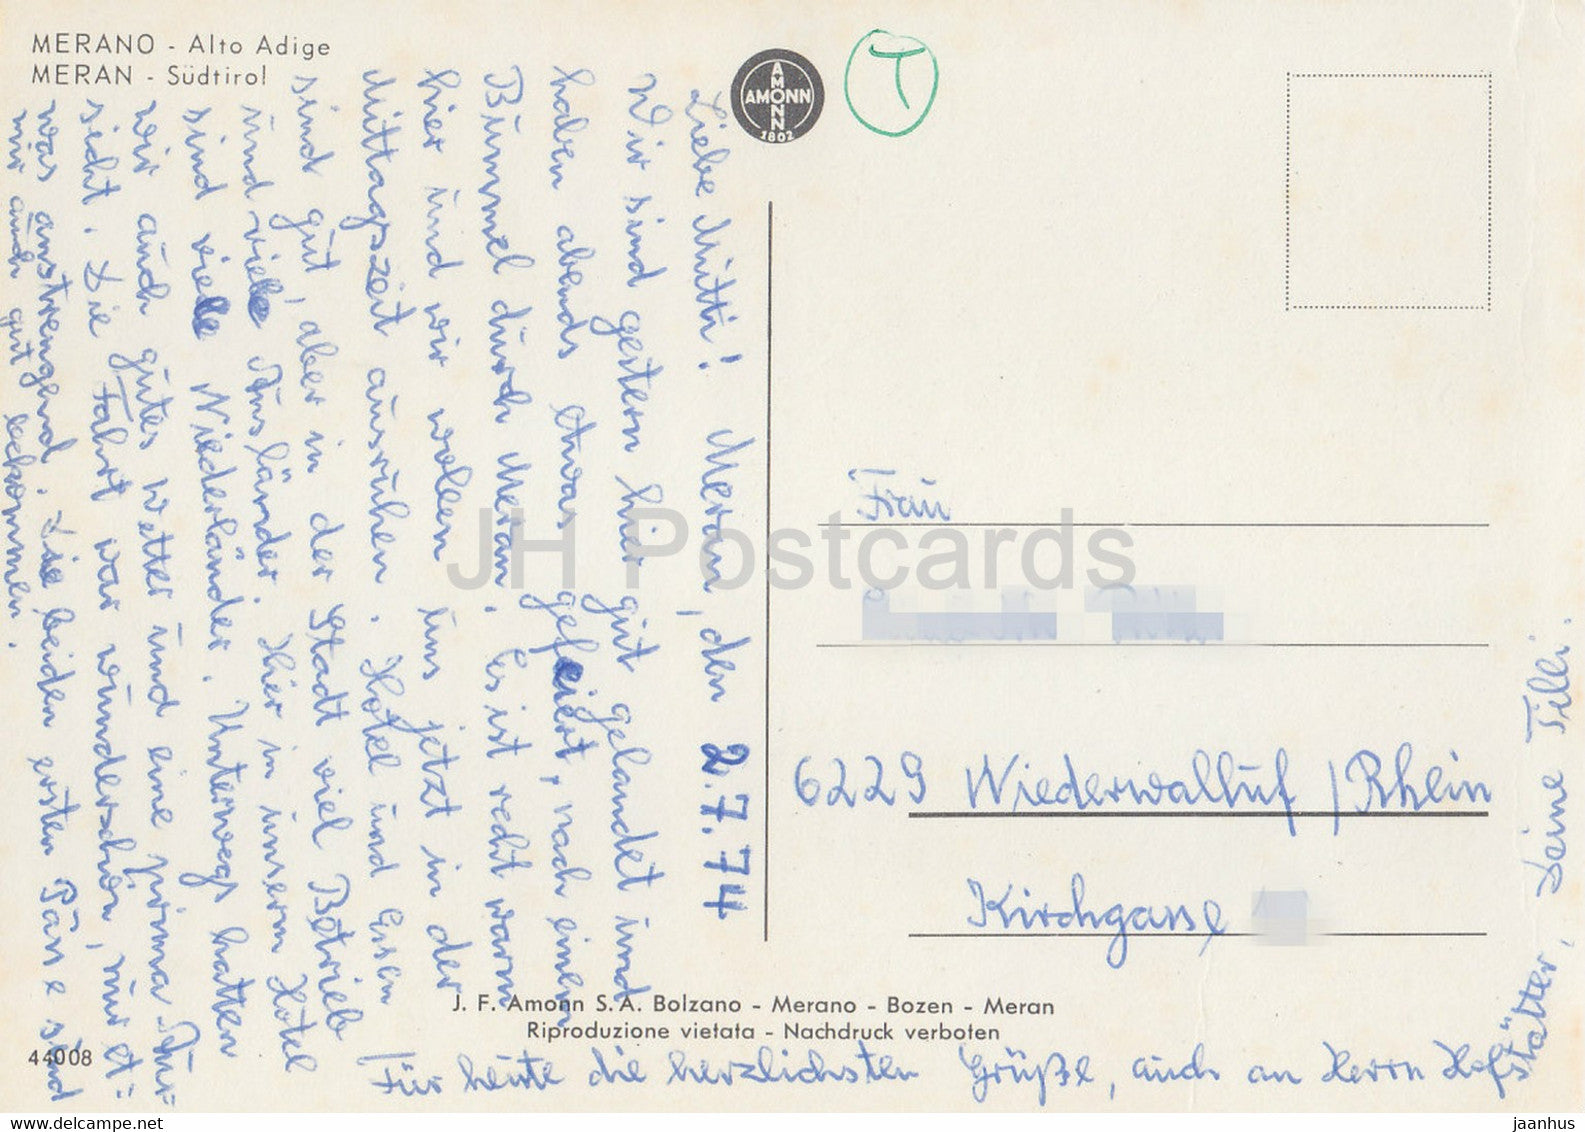 MERANO - Alto Adige
MERAN - Südtirol
AMONN
AMONN
1802
T
Liebe Mutti! Meran, den 2.7.74
Wir sind gestern hier gut gelandet und
haben abends etwas gefeiert, nach einem
Bummel durch Meran. Es ist recht warm
hier und wir wollen uns jetzt in der
Mittagszeit ausruhen. Hotel und Essen
sind gut, aber in der Stadt viel Betrieb
und viele Ausländer. Hier in unserm Hotel
sind viele Niederländer. Unterwegs hatten
wir auch gutes Wetter und eine prima Aus-
sicht. Die Fahrt war wunderschön, nur et=
was anstrengend. Die beiden ersten Pässe sind
mir auch gut bekommen.
Für heute die herzlichsten Grüße, auch an Herrn Hofstätter,
Deine Tilli.
Frau
6229 Niederwalluf / Rhein
Kirchgasse
J. F. Amonn S. A. Bolzano - Merano - Bozen - Meran
Riproduzione vietata - Nachdruck verboten
44008
JH Postcards
www.delcampe.net
jaanhus